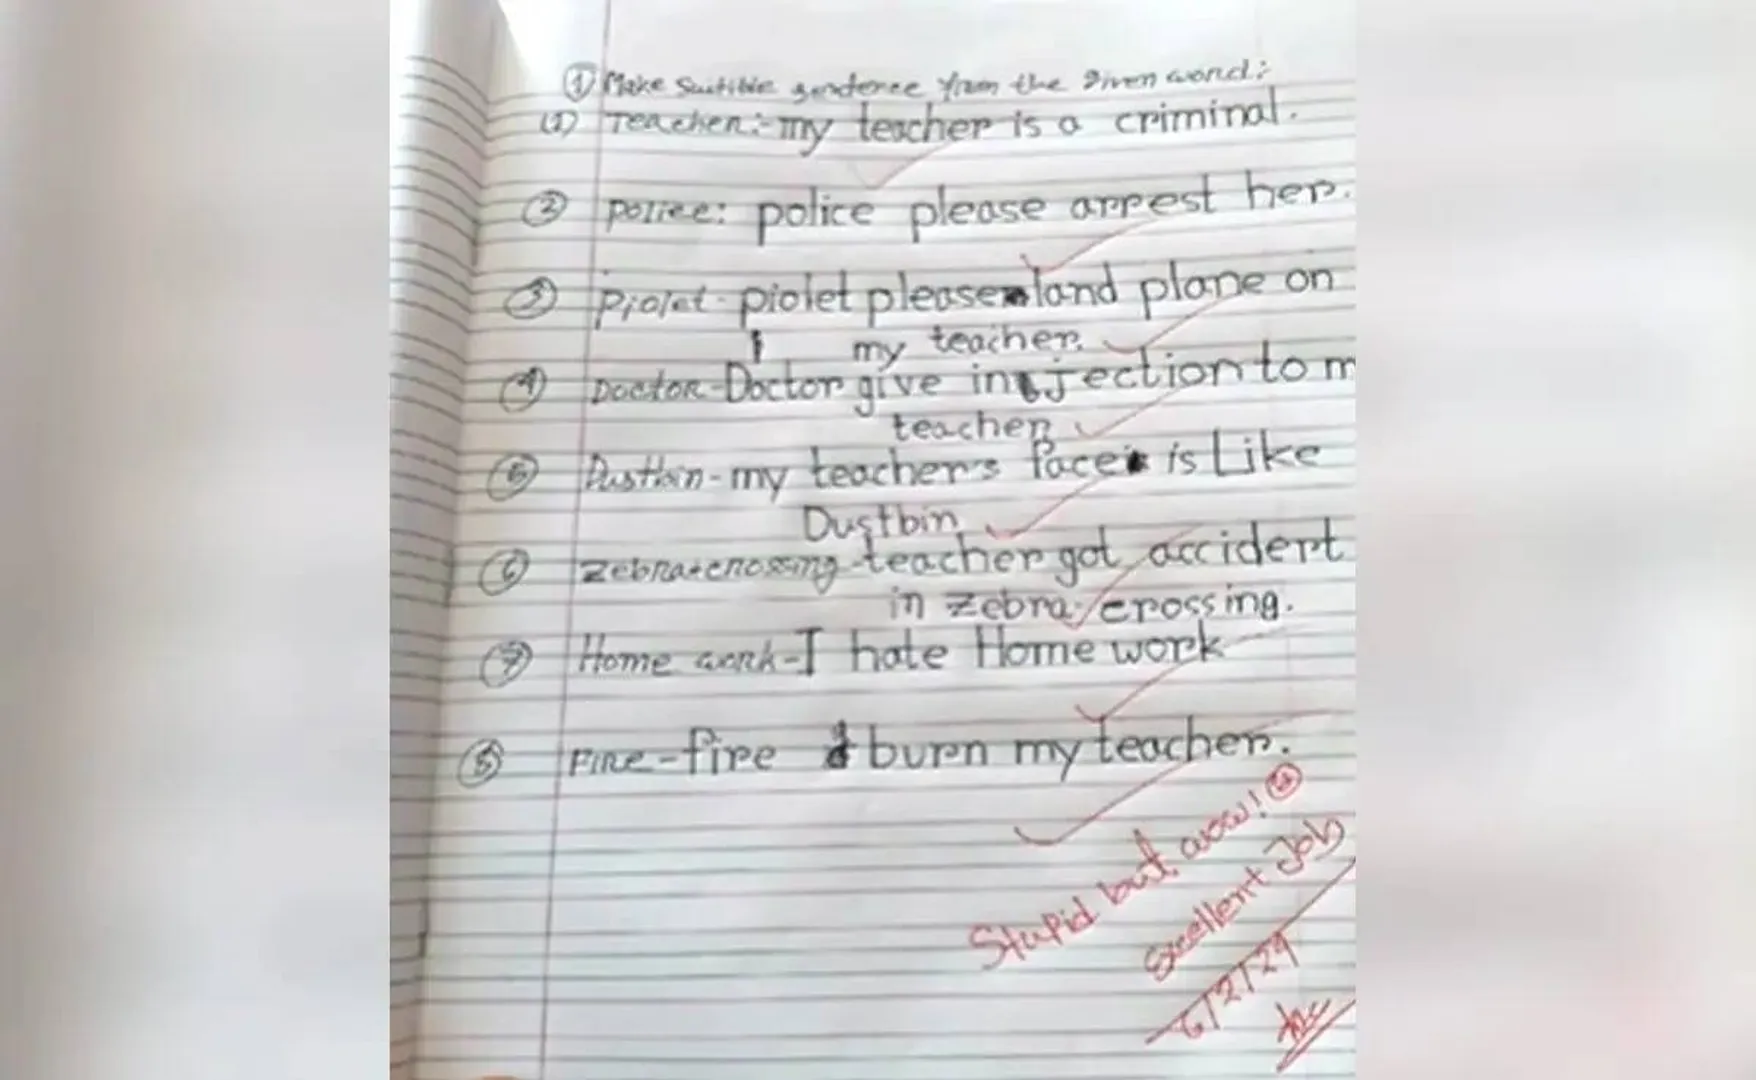 ① Make Suitible sendence from the given word:
(1) Teacher:- my teacher is a criminal.
② police: police please arrest her.
③ Piolet - piolet please land plane on
my teacher.
④ Doctor - Doctor give injection to m
teacher
⑤ Dustbin - my teacher's face is Like
Dustbin
⑥ Zebra crossing - teacher got accident
in zebra crossing.
⑦ Home work - I hate Home work
⑧ Fire - fire burn my teacher.
Stupid but wow!
Excellent Job
6/2/29